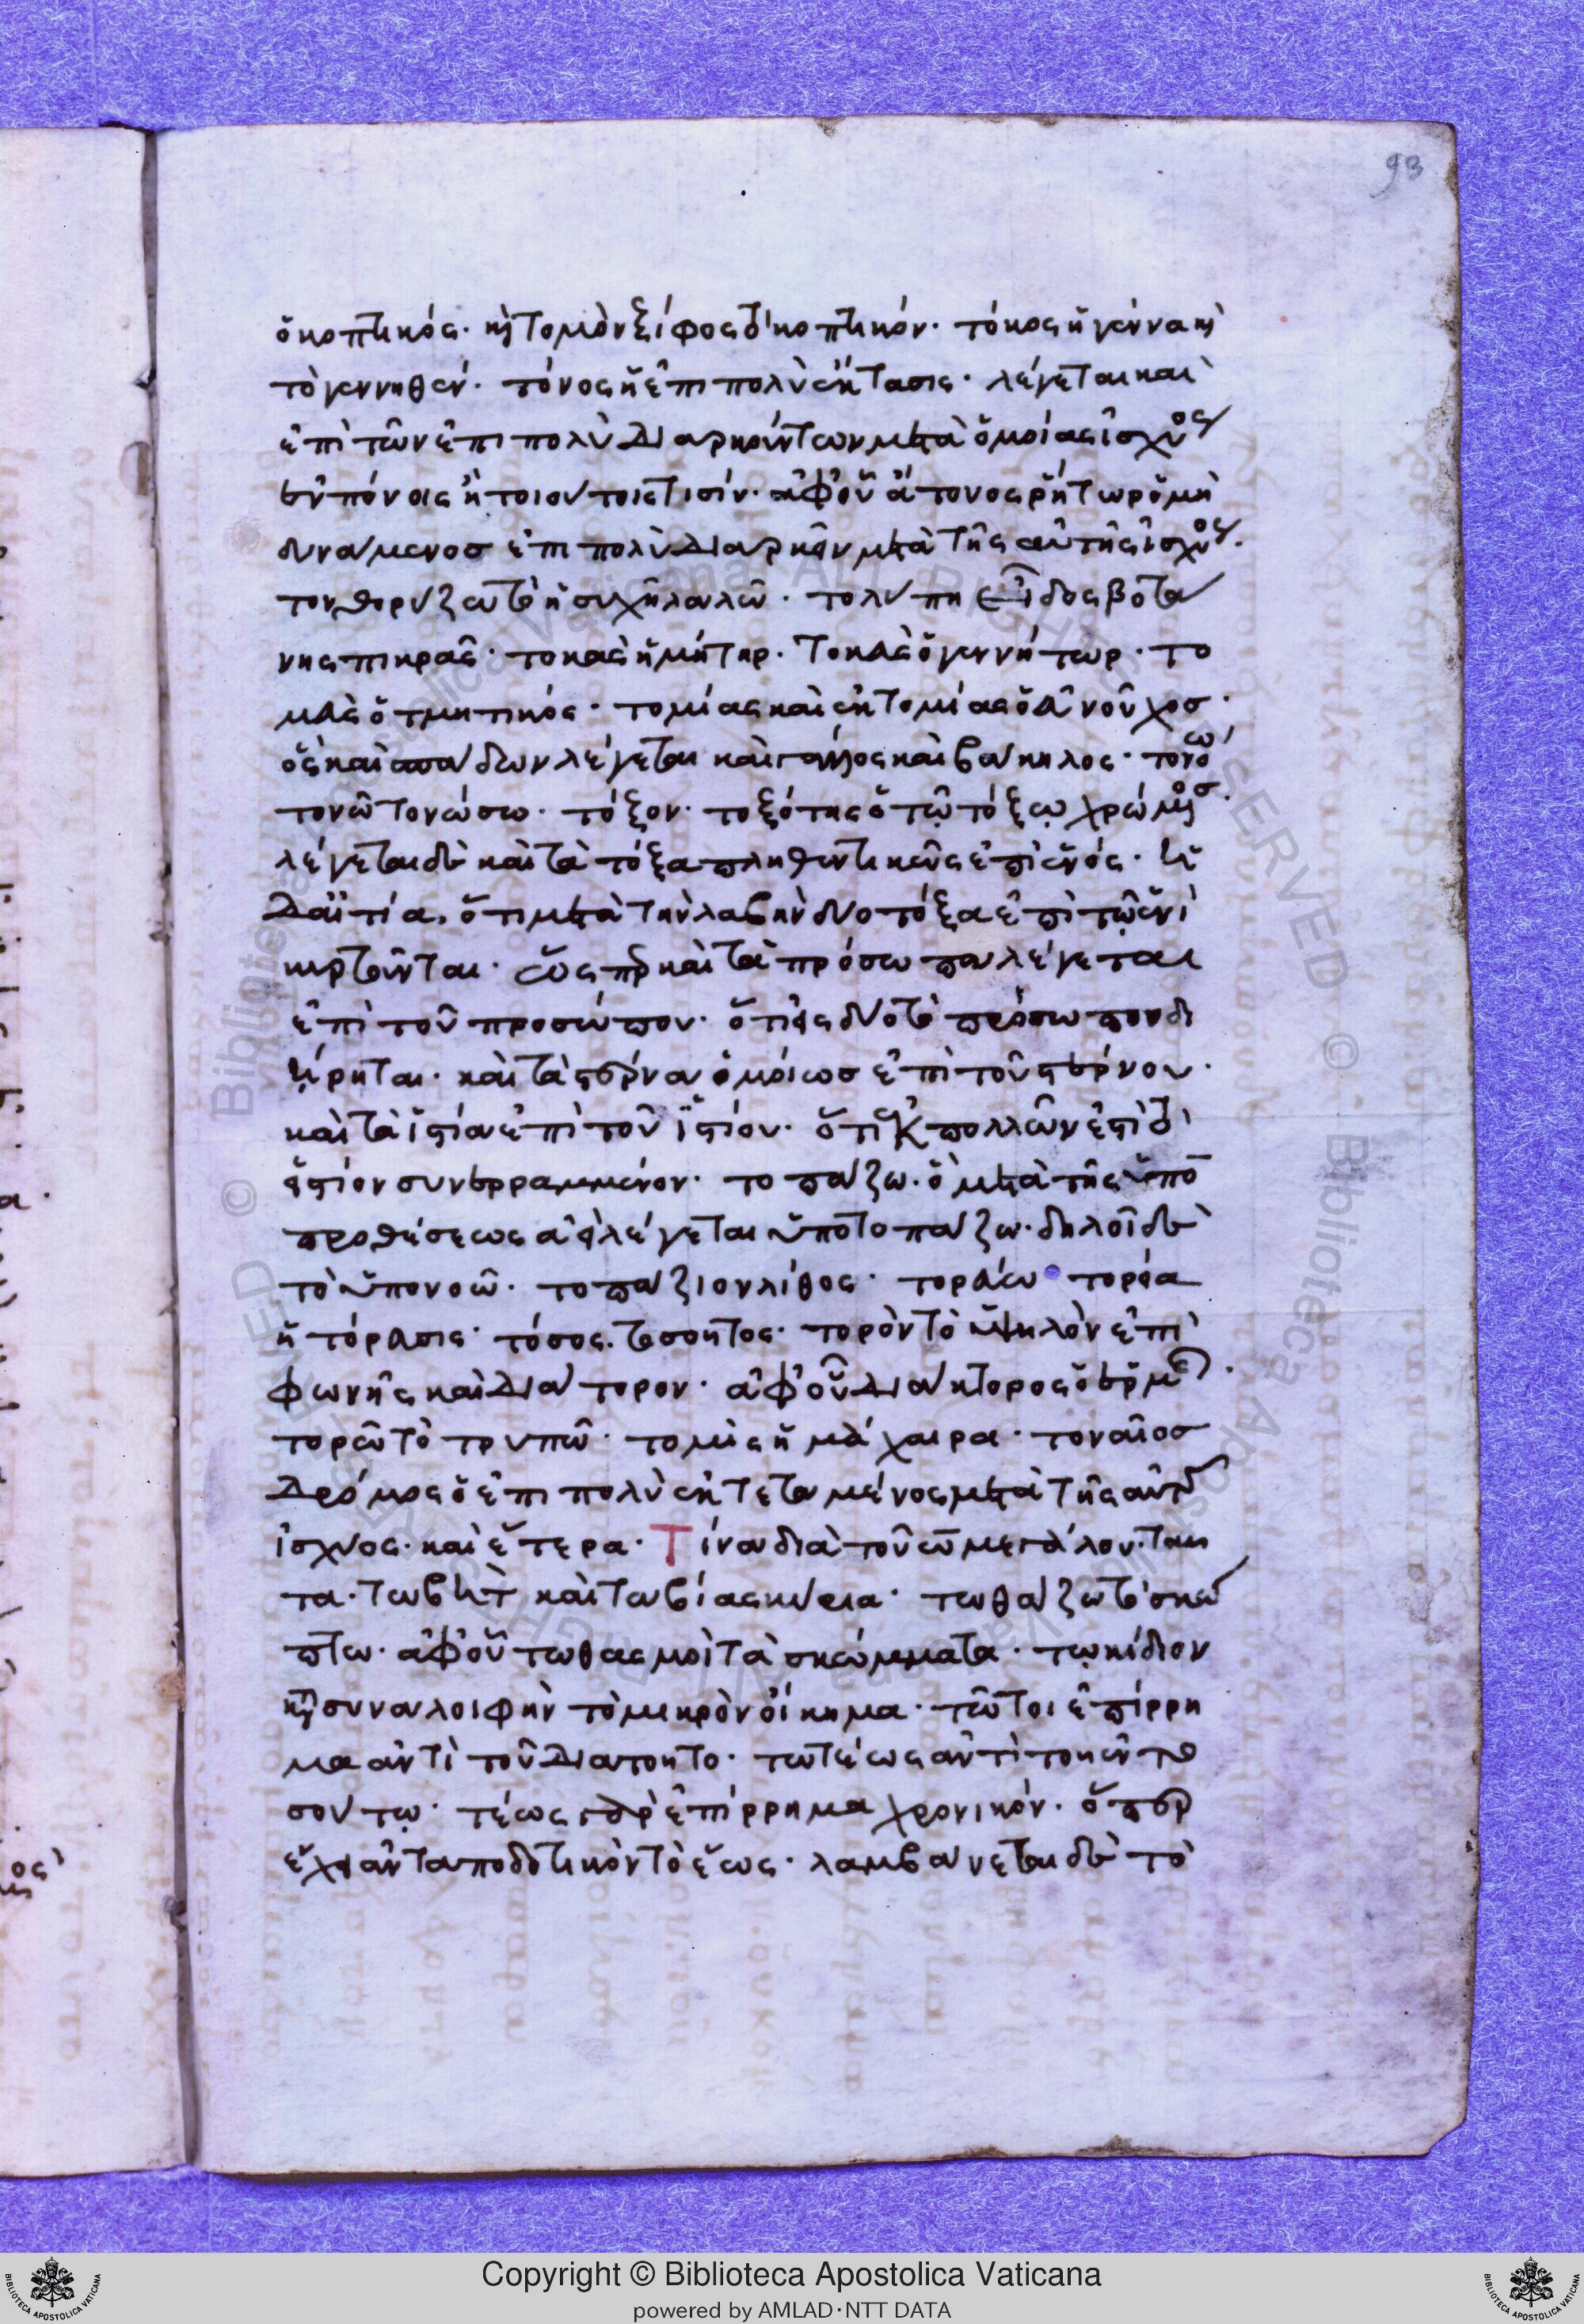 93
ὁ κοπτικός· καὶ τομὸν ξίφος τὸ κοπτικόν· τόκος ἡ γέννα καὶ
τὸ γεννηθέν· τόνος ἡ ἐπιπολὺ ἔκτασις· λέγεται καὶ
ἐπὶ τῶν ἐπιπολὺ διαρκούντων μετὰ ὁμοίας ἰσχύος
ἐν πόνοις ἢ τοιούτοις τισίν· ἀφ' οὗ ἄτονος ῥήτωρ ὁ μὴ
δυνάμενος ἐπιπολὺ διαρκεῖν μετὰ τῆς αὐτῆς ἰσχύος·
τονθορύζω τὸ ἡσυχῆ λαλῶ· τολύπη εἶδος βοτά
νης πικρᾶς· τοκὰς ἡ μήτηρ· τοκεὺς ὁ γεννήτωρ· το
μεὺς ὁ τμητικός· τομίας καὶ ἐκτομίας ὁ εὐνοῦχος·
ὃς καὶ σπάδων λέγεται καὶ γάλλος καὶ βάκηλος· τονῶ
τονῶ τονώσω· τόξον· τοξότης ὁ τῷ τόξῳ χρώμενος·
λέγεται δὲ καὶ τὰ τόξα πληθυντικῶς ἐπὶ ἑνός· ἡ
δ' αἰτία, ὅτι μετὰ τὴν λαβὴν δύο τόξα ἐπὶ τῷ ἑνὶ
κυρτοῦνται· ὥσπερ καὶ τὰ πρόσωπα λέγεται
ἐπὶ τοῦ προσώπου· ὅτι εἰς δύο τὸ πρόσωπον δι
ῄρηται· καὶ τὰ στέρνα ὁμοίως ἐπὶ τοῦ στέρνου·
καὶ τὰ ἱστία ἐπὶ τοῦ ἱστίου· ὅτι ἐκ πολλῶν ἐστὶ τὸ
ἱστίον συνερραμμένον· τοπάζω· ὃ μετὰ τῆς ὑπὸ
προθέσεως ἀεὶ λέγεται ὑποτοπάζω· δηλοῖ δὲ
τὸ ὑπονοῶ· τοπάζιον λίθος· τορεύω τορεία
ἡ τόρευσις· τόσος. τοσοῦτος· τορὸν τὸ ὑψηλὸν ἐπὶ
φωνῆς καὶ διάτορον· ἀφ' οὗ διάκτορος ὁ ἑρμῆς·
τορῶ τὸ τρυπῶ· τομὶς ἡ μάχαιρα· τοναῖος
δρόμος ὁ ἐπιπολὺ ἐκτεταμένος μετὰ τῆς αὐτῆς
ἰσχύος· καὶ ἕτερα· Τίνα διὰ τοῦ ω μεγάλου· ταῦ
τα· τωβὴτ καὶ τωβίας κύρια· τωθάζω τὸ σκώ
πτω· ἀφ' οὗ τωθασμοὶ τὰ σκώμματα· τῳκίδιον
κατὰ συναλοιφὴν τὸ μικρὸν οἴκημα· τῶ τοι ἐπίρρη
μα ἀντὶ τοῦ διὰ τοῦτο· τωτέως ἀντὶ τοῦ ἐν το
σούτῳ· τέως γὰρ ἐπίρρημα χρονικόν· ὅπερ
ἔχει ἀνταποδοτικὸν τὸ ἕως· λαμβάνεται δὲ τὸ
Copyright © Biblioteca Apostolica Vaticana
powered by AMLAD·NTT DATA